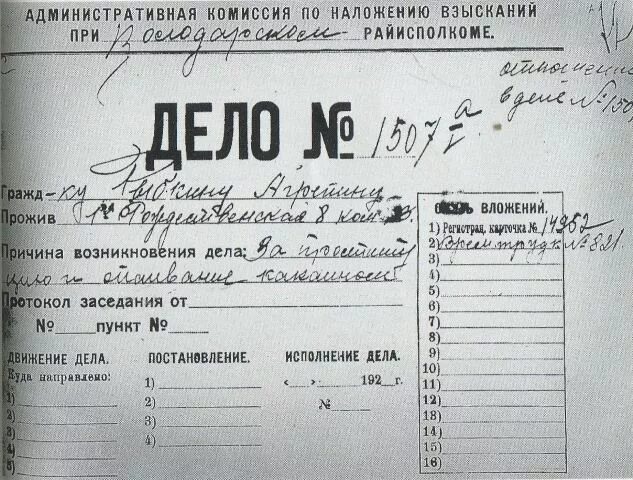 АДМИНИСТРАТИВНАЯ КОМИССИЯ ПО НАЛОЖЕНИЮ ВЗЫСКАНИЙ
ПРИ Володарском РАЙИСПОЛКОМЕ.
отношение
в деле № 150
ДЕЛО № 1507 а
Гражд-ку Рыбкину Агрепину
Прожив 1ая Рождественская 8 ком
Причина возникновения дела: За проститу
цию и спаивание кокаином
Протокол заседания от
№ пункт №
ВЛОЖЕНИЙ.
1) Регистрац. карточка № 14952
2) Врем. трудк № 821.
3)
4)
5)
6)
7)
8)
9)
10)
11)
12)
18)
14)
15)
16)
ДВИЖЕНИЕ ДЕЛА.
Куда направлено:
1)
2)
3)
4)
5)
ПОСТАНОВЛЕНИЕ.
1)
2)
3)
4)
ИСПОЛНЕНИЕ ДЕЛА.
« » 192 г.
№